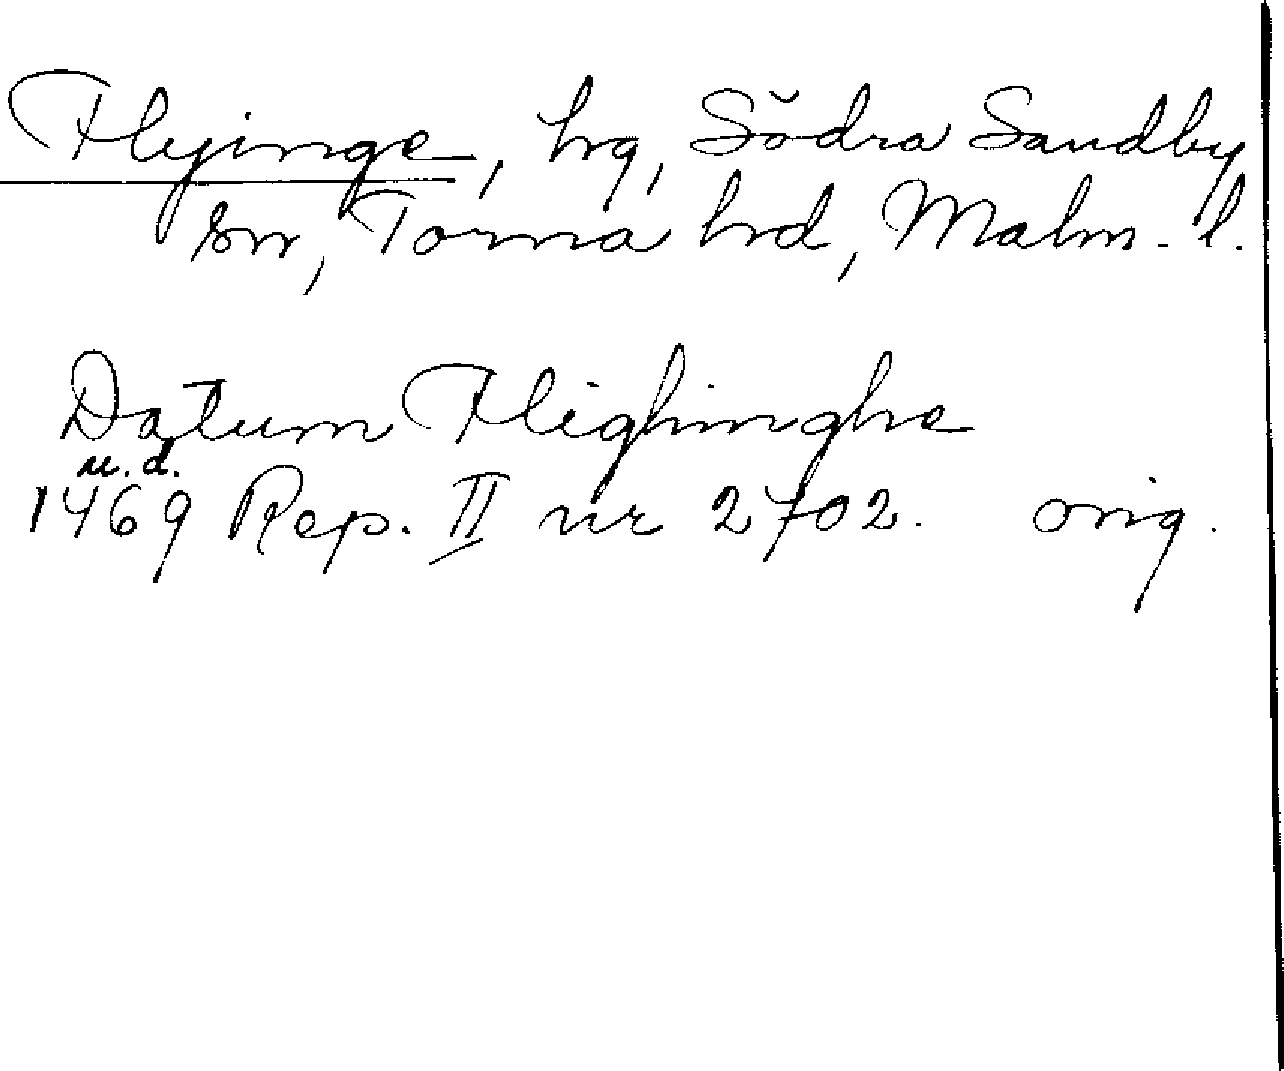 Flyinge, hg, Södra Sandby
sn, Torna hd, Malm. l.
Datum Flighinghe
u. d.
1469 Rep. II nr 2702. orig.